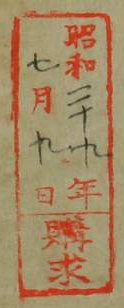 昭和二十九年
七月九日
購求